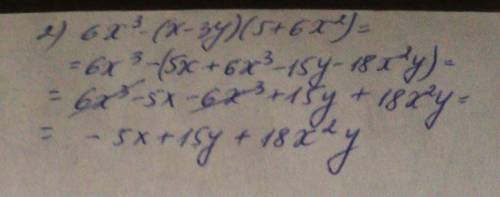 2) 6x³-(x-3y)(5+6x²)=
=6x³-(5x+6x³-15y-18x²y)=
=6x³-5x-6x³+15y+18x²y=
= -5x+15y+18x²y